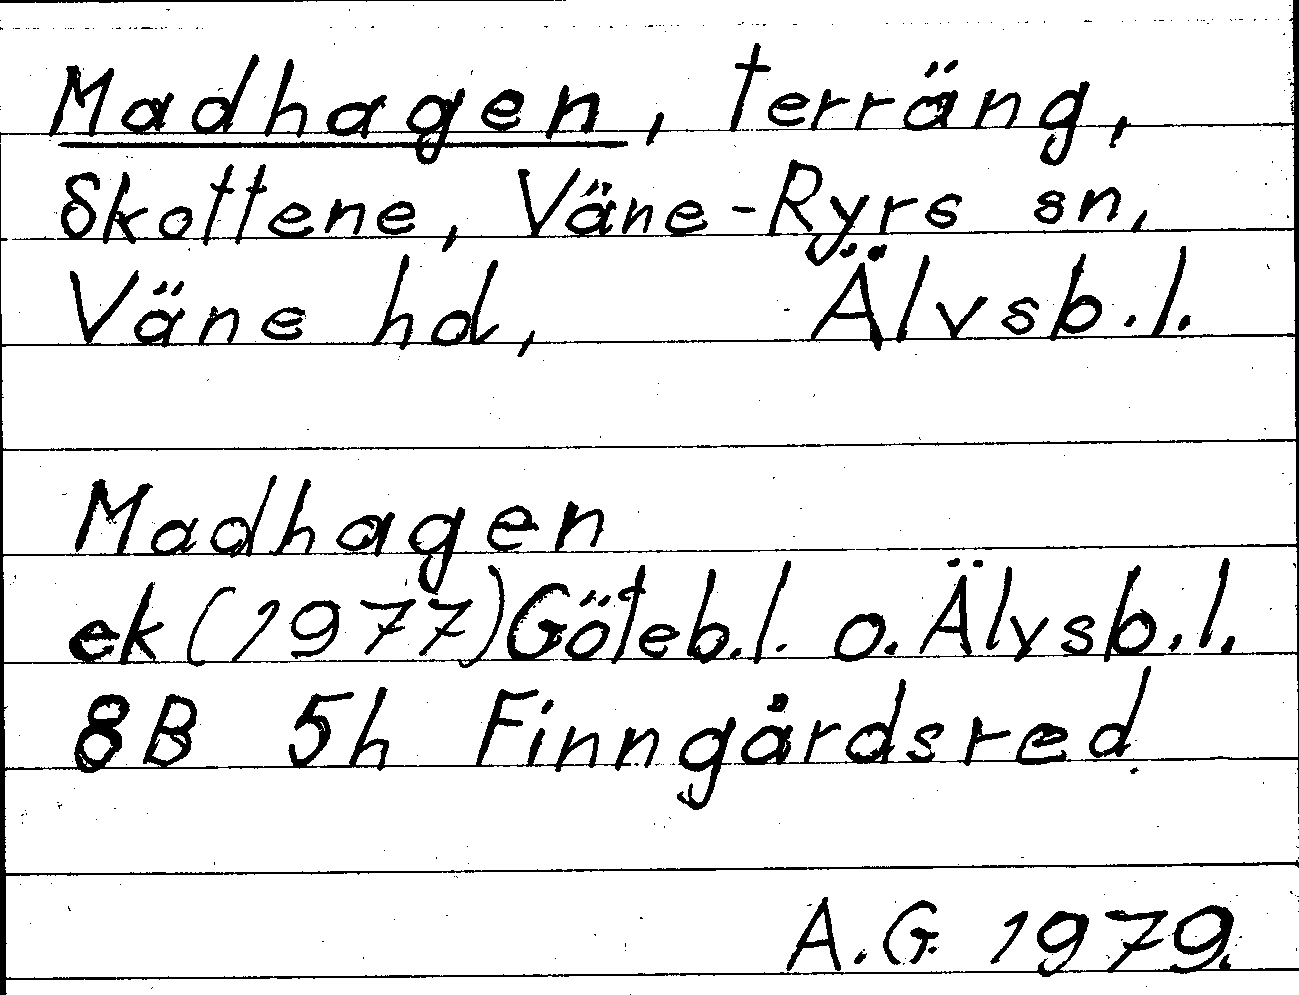 Madhagen, terräng,
Skottene, Väne-Ryrs sn,
Väne hd, Älvsb.l.
Madhagen
ek (1977) Göteb.l. o. Älvsb.l.
8B 5h Finngårdsred
A.G. 1979.